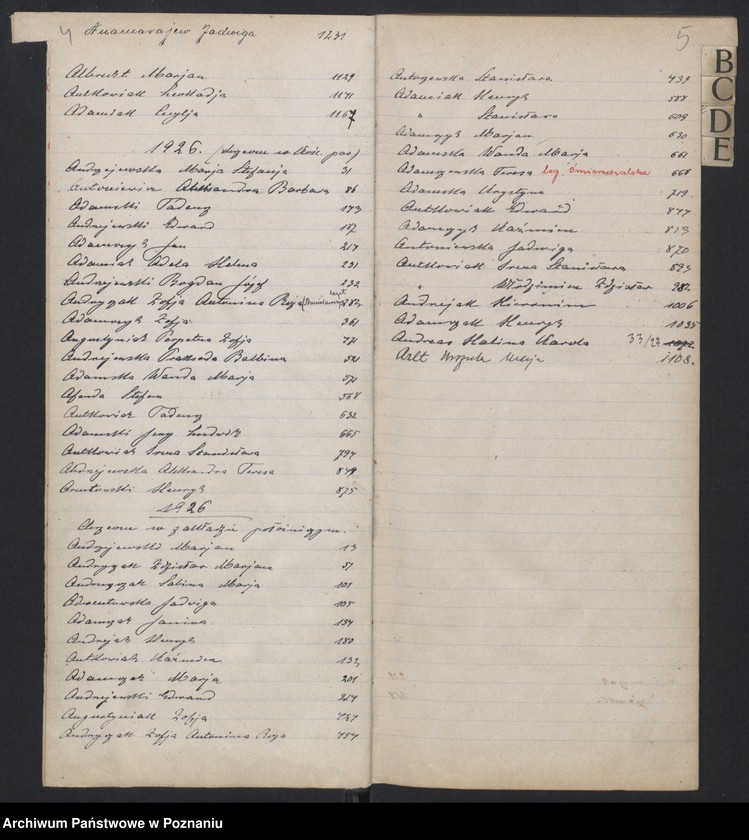 4
Jadwiga 1231
Albrecht Marjan 1129
Antkowiak Leokadja 1141
Adamiak Cecylja 1167
1926.
Andrzejewska Marja Stefanja 31
Antoniewicz Aleksandra Barbara 86
Adamski Tadeusz 173
Andrzejewski Edward 197
Adamczyk Jan 217
Adamiak Adela Helena 231
Andrzejewski Bogdan Józef 232
Andrzyczak Zofja Antonina Róża
Adamczyk Zofja 361
Augustyniak Perpetua Zofja 471
Andrzejewska Prakseda Balbina 521
Adamska Wanda Marja 571
Stefan 568
Antkowiak Tadeusz 632
Adamski Jerzy Ludwik 665
Antkowiak Irena Stanisława 794
Andrzejewska Aleksandra Teresa 849
Henryk 875
1926
w zakładzie położniczym.
Andrzejewski Marjan 13
Zdzisław Marjan 51
Sabina Marja 101
Adwentowska Jadwiga 105
Adamczak Janina 134
Andrzejak Henryk 180
Antkowiak Kaźmierz 132
Adamczak Marja 201
Andrzejewski Edward 254
Augustyniak Zofja 437
Andrzyczak Zofja Antonina Róża 454
5
Stanisława 439
Adamiak Henryk 588
" Stanisława 609
Adamczyk Marjan 630
Adamska Wanda Marja 661
Teresa 668
Adamska Krystyna 719
Antkowiak Edward 847
Adamczyk Kaźmierz 853
Antoniewska Jadwiga 870
Antkowiak Irena Stanisława 893
" Włodzimierz Zdzisław 982
Andrzejak Hieronim 1006
Adamczak Henryk 1035
Andreas Halina Karola 33/27
Arlt Urszula 1108.
B
C
D
E
Archiwum Państwowe w Poznaniu